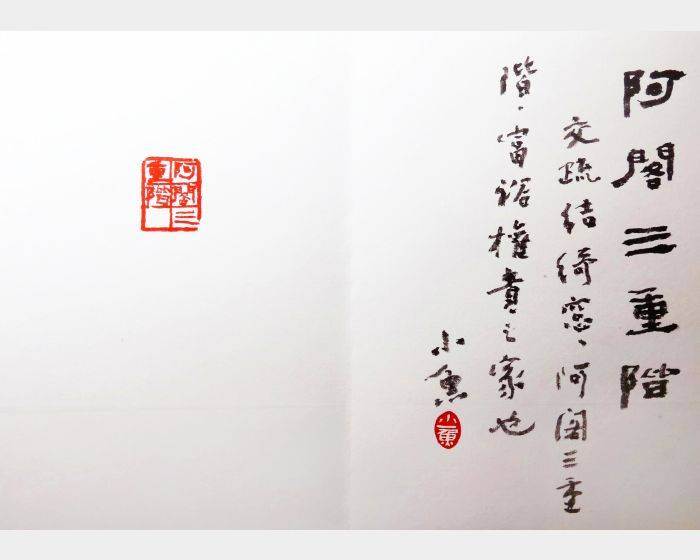 阿閣三重階
交疏結綺窓、阿閣三重
階、富裕權貴之家也
小魚
阿閣三
重階